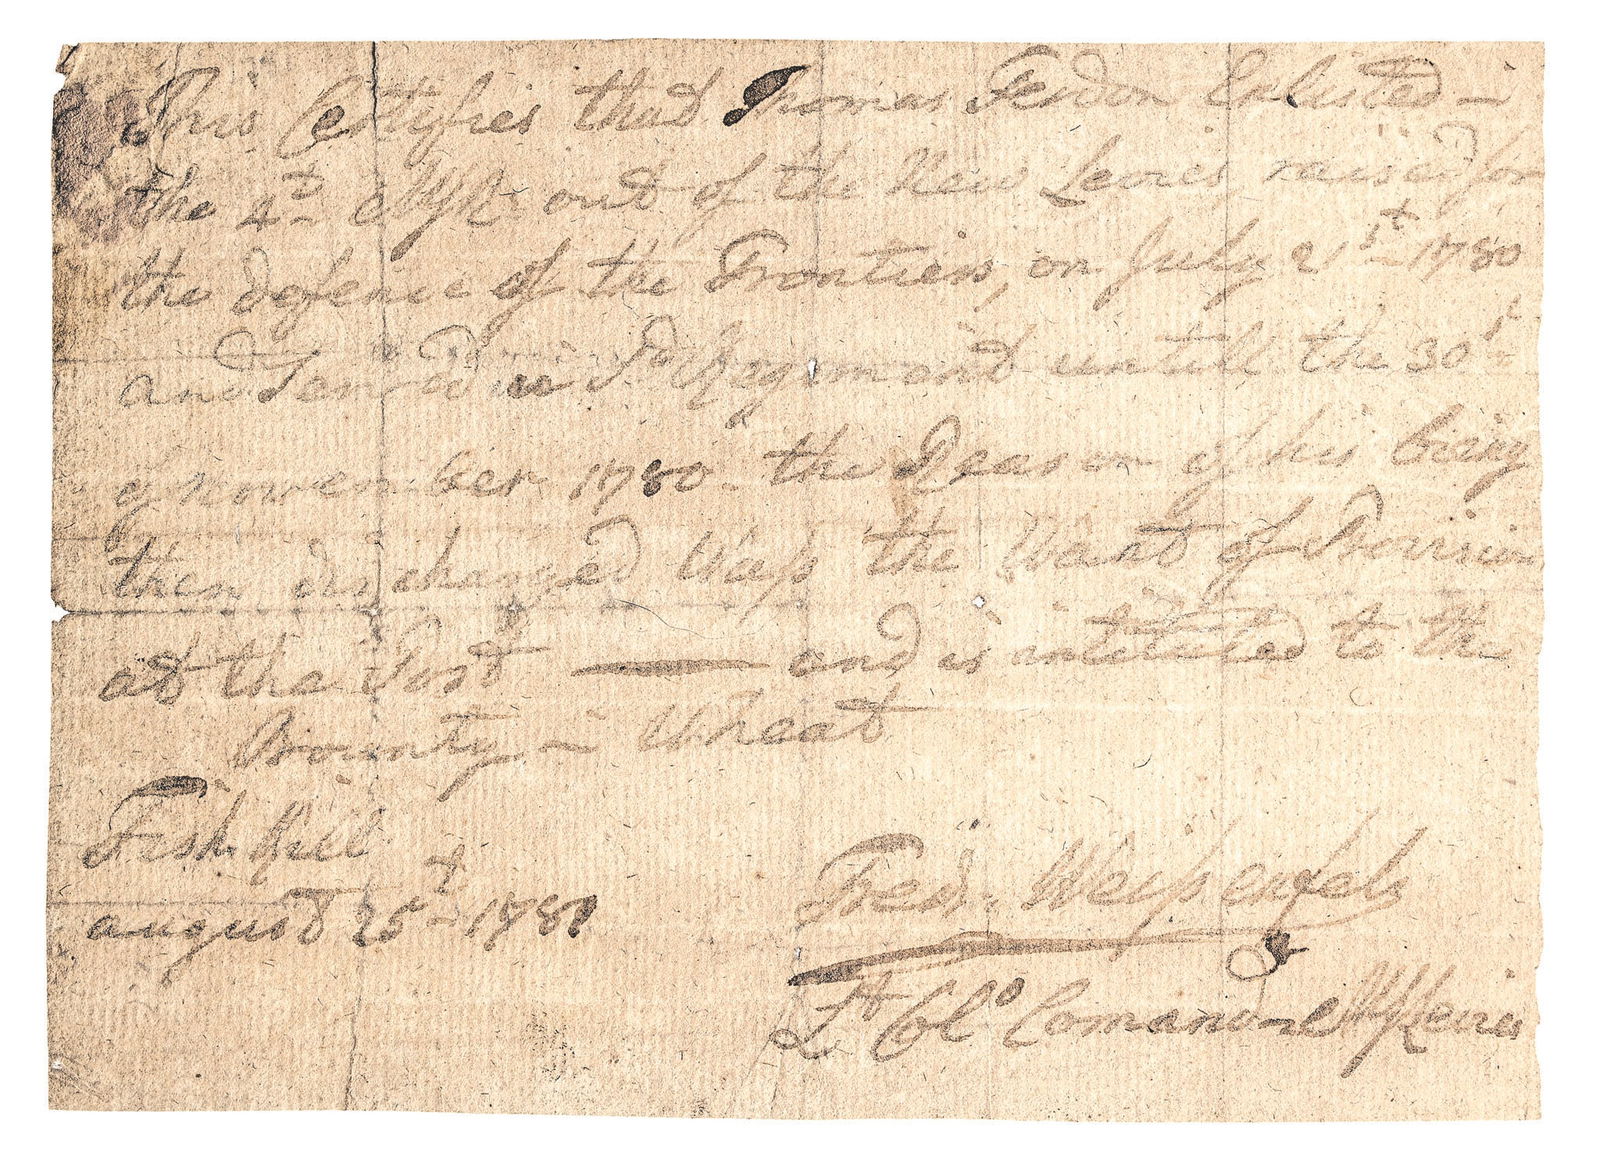 This Certifies that Thomas Ferdon Enlisted -
the 4t NYRt out of the New Levies raised for
the defence of the Frontiers, on July 21st 1780
and Served in Sd Regiment untill the 30t
of November 1780 - the Reason of his being
then discharged Wass the Want of Provision
at the Post — and is intituled to the
Bounty - Wheat
Fish Kill
august 25t - 1781
Fredk. Weissenfels
Lt Colo Comand NYLevies